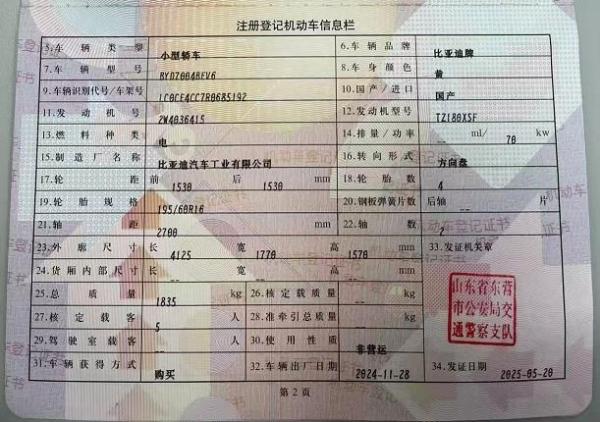 注册登记机动车信息栏
5.车辆类型 小型轿车 6.车辆品牌 比亚迪牌
7.车辆型号 BYD7004BEV6 8.车身颜色 黄
9.车辆识别代号/车架号 LC0CE4CC7R0685192 10.国产/进口 国产
11.发动机号 2W4036415 12.发动机型号 TZ180XSF
13.燃料种类 电 14.排量/功率 -- ml/ 70 kw
15.制造厂名称 比亚迪汽车工业有限公司 16.转向形式 方向盘
17.轮距 前 1530 后 1530 mm 18.轮胎数 4
19.轮胎规格 195/60R16 20.钢板弹簧片数 后轴 -- 片
21.轴距 2700 mm 22.轴数 2
23.外廓尺寸 长 4125 宽 1770 高 1570 mm 33.发证机关章
24.货厢内部尺寸 长 -- 宽 -- 高 -- mm
25.总质量 1835 kg 26.核定载质量 -- kg
27.核定载客 5 人 28.准牵引总质量 -- kg
29.驾驶室载客 -- 人 30.使用性质 非营运
31.车辆获得方式 购买 32.车辆出厂日期 2024-11-28 34.发证日期 2025-05-20
山东省东营
市公安局交
通警察支队
第2页